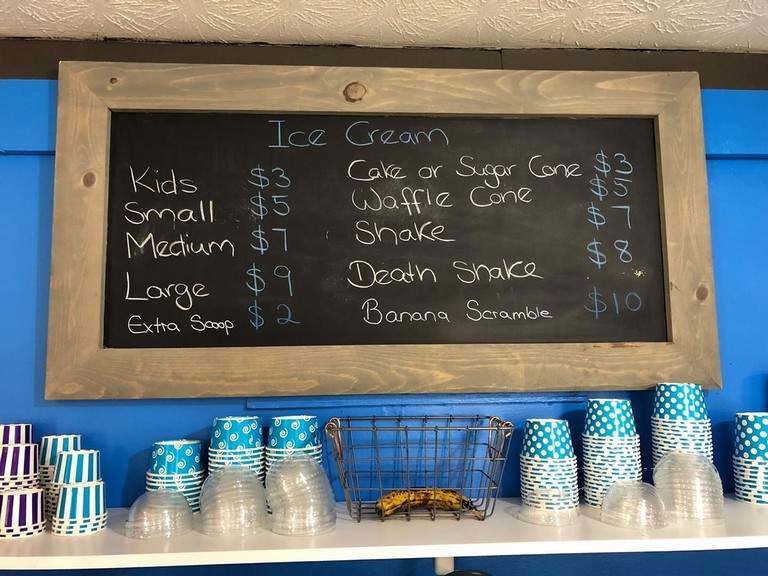 Ice Cream
Kids $3
Small $5
Medium $7
Large $9
Extra Scoop $2
Cake or Sugar Cone $3
Waffle Cone $5
Shake $7
Death Shake $8
Banana Scramble $10